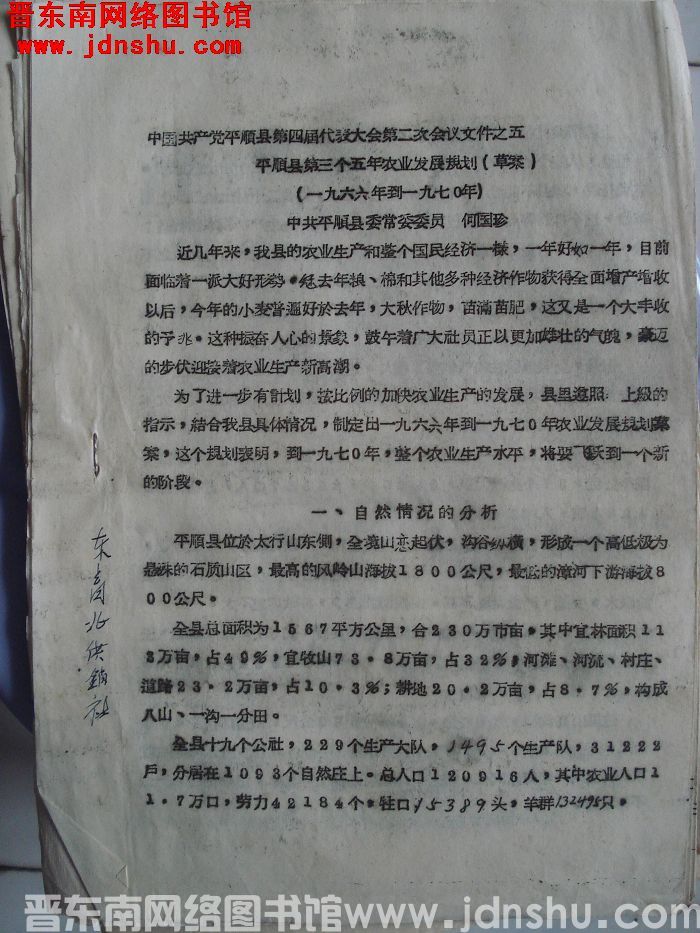 晋东南网络图书馆
www.jdnshu.com
中国共产党平顺县第四届代表大会第二次会议文件之五
平顺县第三个五年农业发展规划(草案)
(一九六六年到一九七0年)
中共平顺县委常委委员 何国珍
近几年来,我县的农业生产和整个国民经济一样,一年好如一年,目前
面临着一派大好形势。继去年粮、棉和其他多种经济作物获得全面增产增收
以后,今年的小麦普遍好於去年,大秋作物,苗满苗肥,这又是一个大丰收
的予兆。这种振奋人心的景象,鼓午着广大社员正以更加雄壮的气魄,豪迈
的步伏迎接着农业生产新高潮。
为了进一步有计划,按比例的加快农业生产的发展,县里遵照 上级的
指示,结合我县具体情况,制定出一九六六年到一九七0年农业发展规划草
案,这个规划表明,到一九七0年,整个农业生产水平,将要飞跃到一个新
的阶段。
一、自然情况的分析
平顺县位於太行山东侧,全境山峦起伏,沟谷纵横,形成一个高低极为
悬殊的石质山区,最高的风岭山海拔1800公尺,最低的漳河下游海拔8
00公尺。
全县总面积为1567平方公里,合230万市亩。其中宜林面积11
3万亩,占49%,宜牧山73·8万亩,占32%,河滩、河流、村庄、
道路23·2万亩,占10·3%;耕地20·2万亩,占8·7%,构成
八山、一沟一分田。
全县十九个公社,229个生产大队,1495个生产队,31222
户,分居在1093个自然庄上。总人口120916人,其中农业人口1
1.7万口,劳力42184个。牲口15389头,羊群132495只。
东青北供销社
晋东南网络图书馆www.jdnshu.com